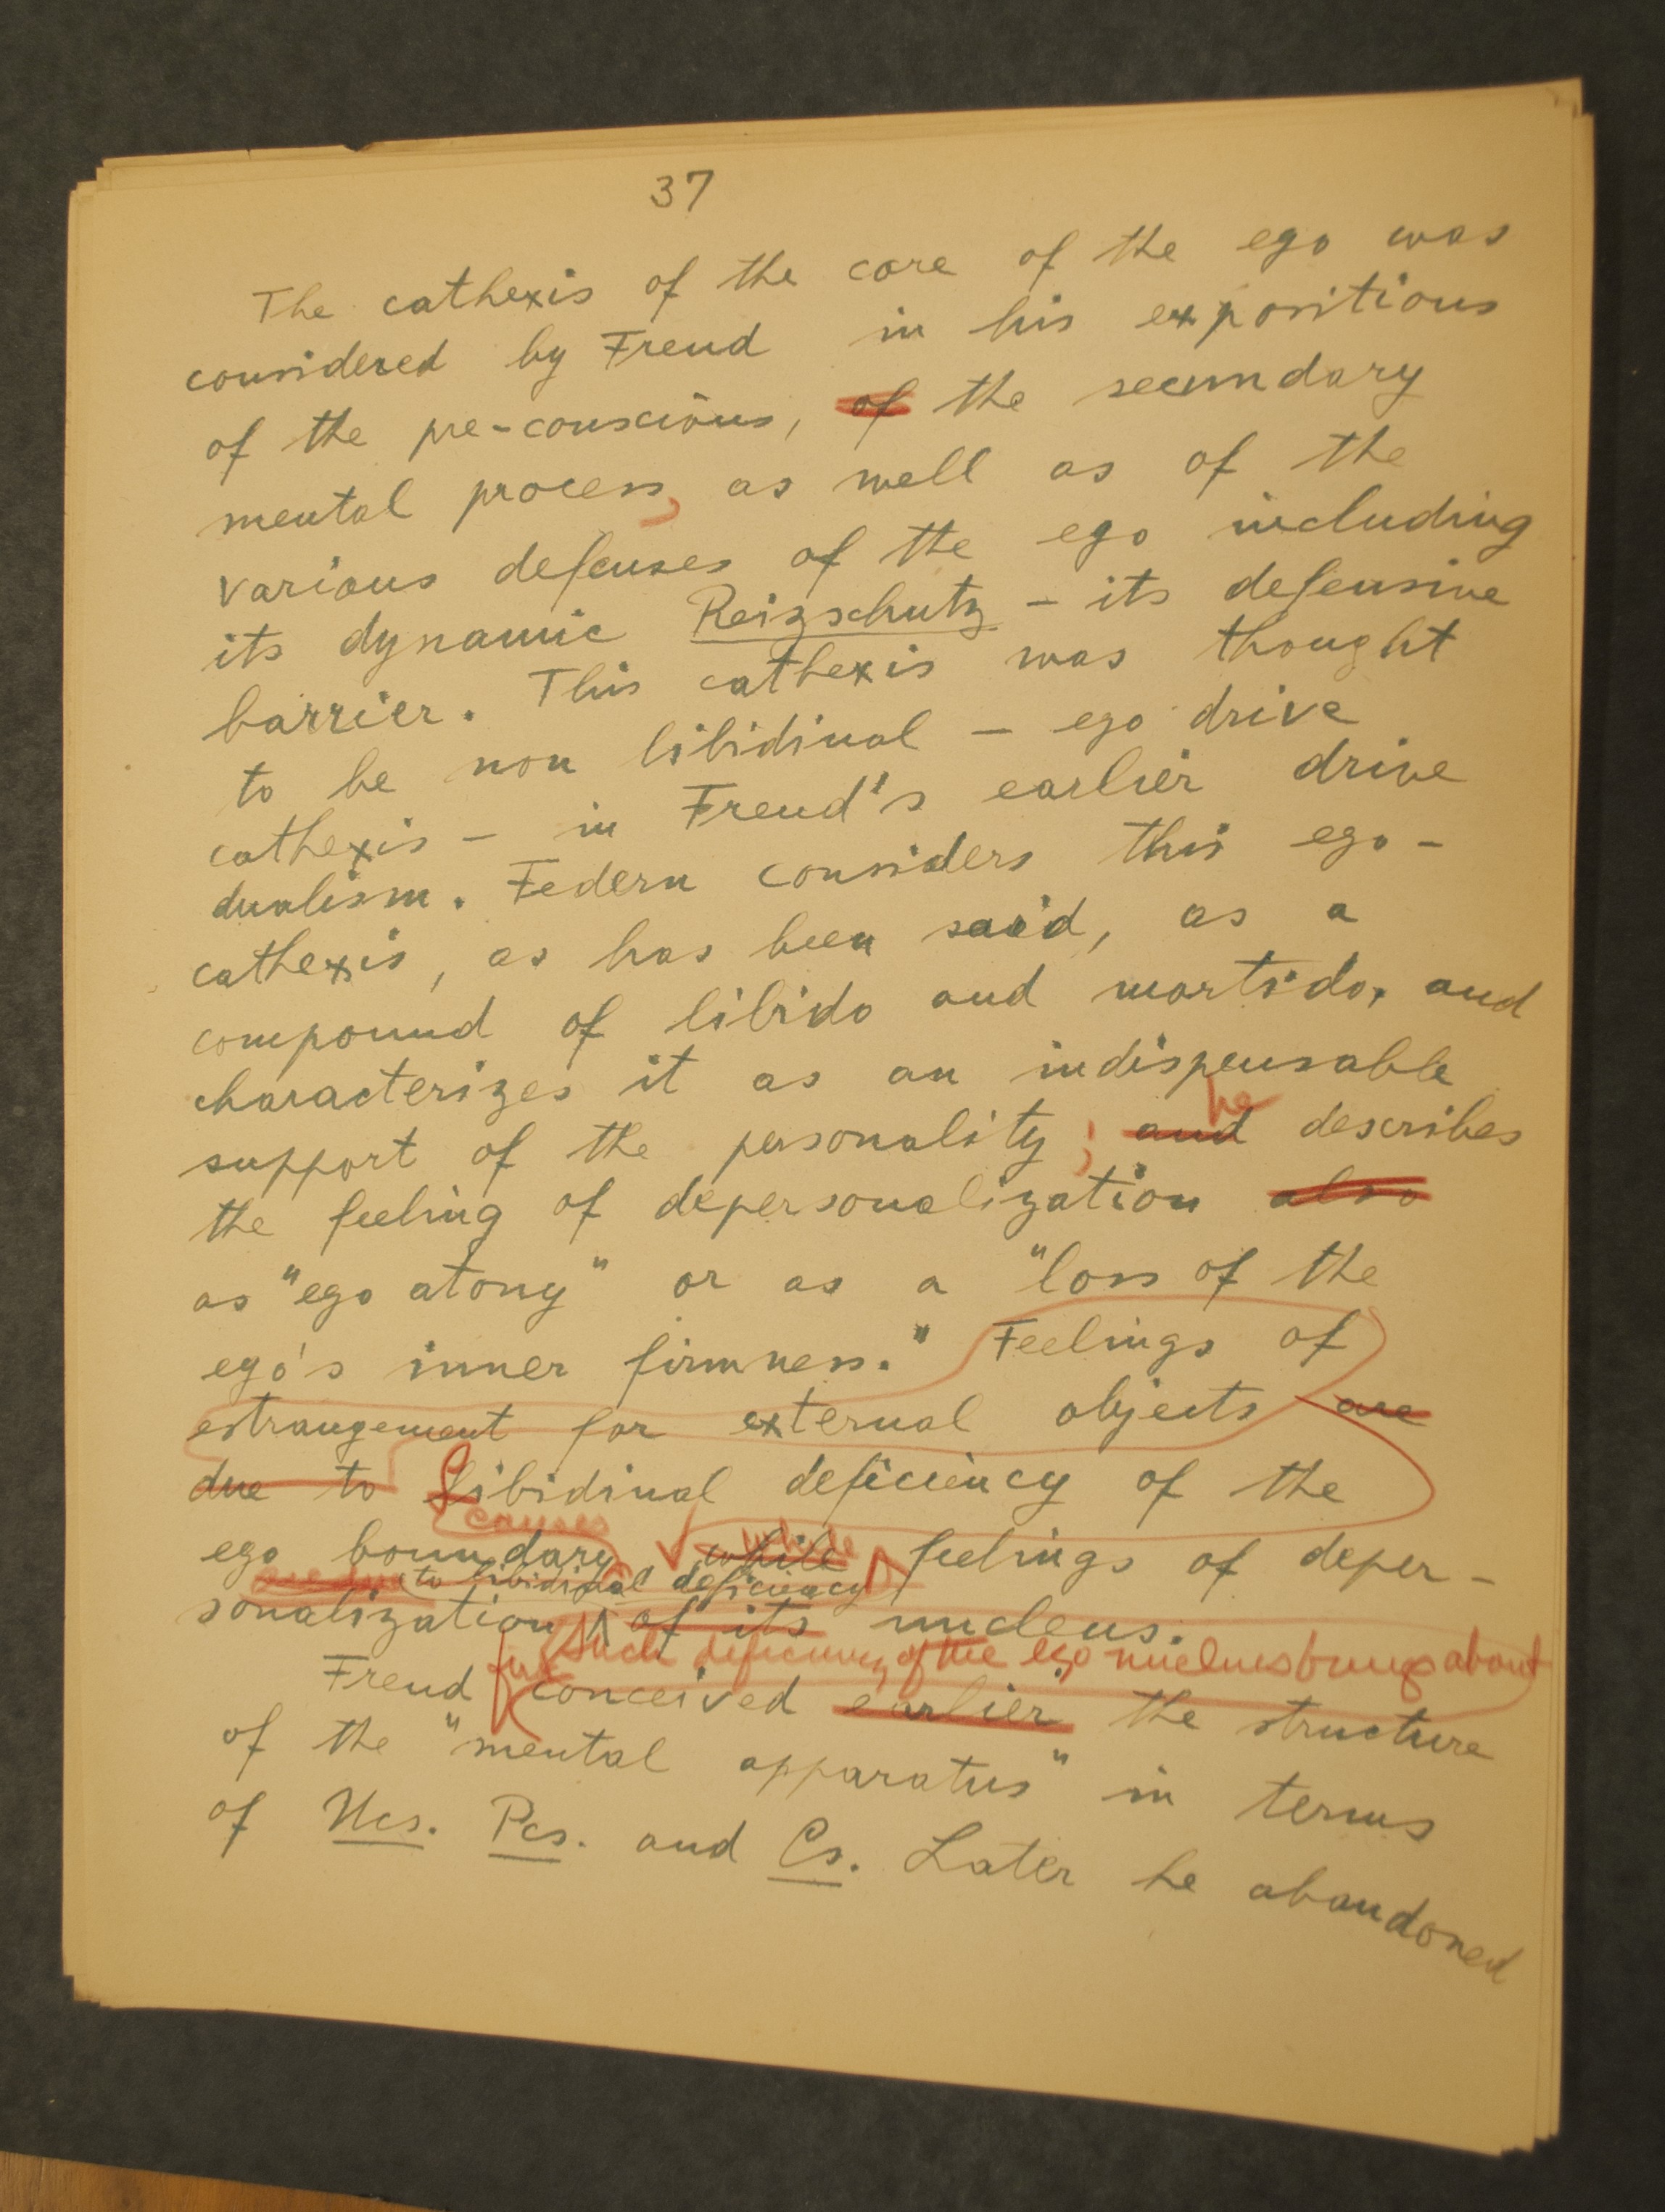 37
The cathexis of the core of the ego was
considered by Freud in his expositions
of the pre-conscious, of the secundary
mental process, as well as of the
various defenses of the ego including
its dynamic Reizschutz - its defensive
barrier. This cathexis was thought
to be non libidinal - ego drive
cathexis - in Freud's earlier drive
dualism. Federn considers this ego-
cathexis, as has been said, as a
compound of libido and mortido, and
characterizes it as an indispensable
he
support of the personality; and describes
the feeling of depersonalization also
as "ego atony" or as a "loss of the
ego's inner firmness." Feelings of
estrangement for external objects are
due to Libidinal deficiency of the
causes while
ego boundary while feelings of deper-
are due to libidinal deficiency
sonalization of its nucleus.
such deficiency of the ego nucleus brings about
Freud first conceived earlier the structure
of the "mental apparatus" in terms
of Ucs. Pcs. and Cs. Later he abandoned